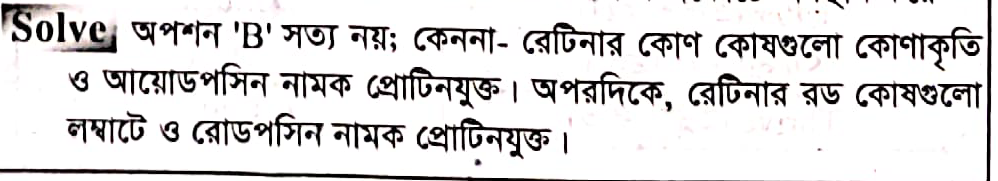 Solve অপশন 'B' সত্য নয়; কেননা- রেটিনার কোণ কোষগুলো কোণাকৃতি
ও আয়োডপসিন নামক প্রোটিনযুক্ত। অপরদিকে, রেটিনার রড কোষগুলো
লম্বাটে ও রোডপসিন নামক প্রোটিনযুক্ত।